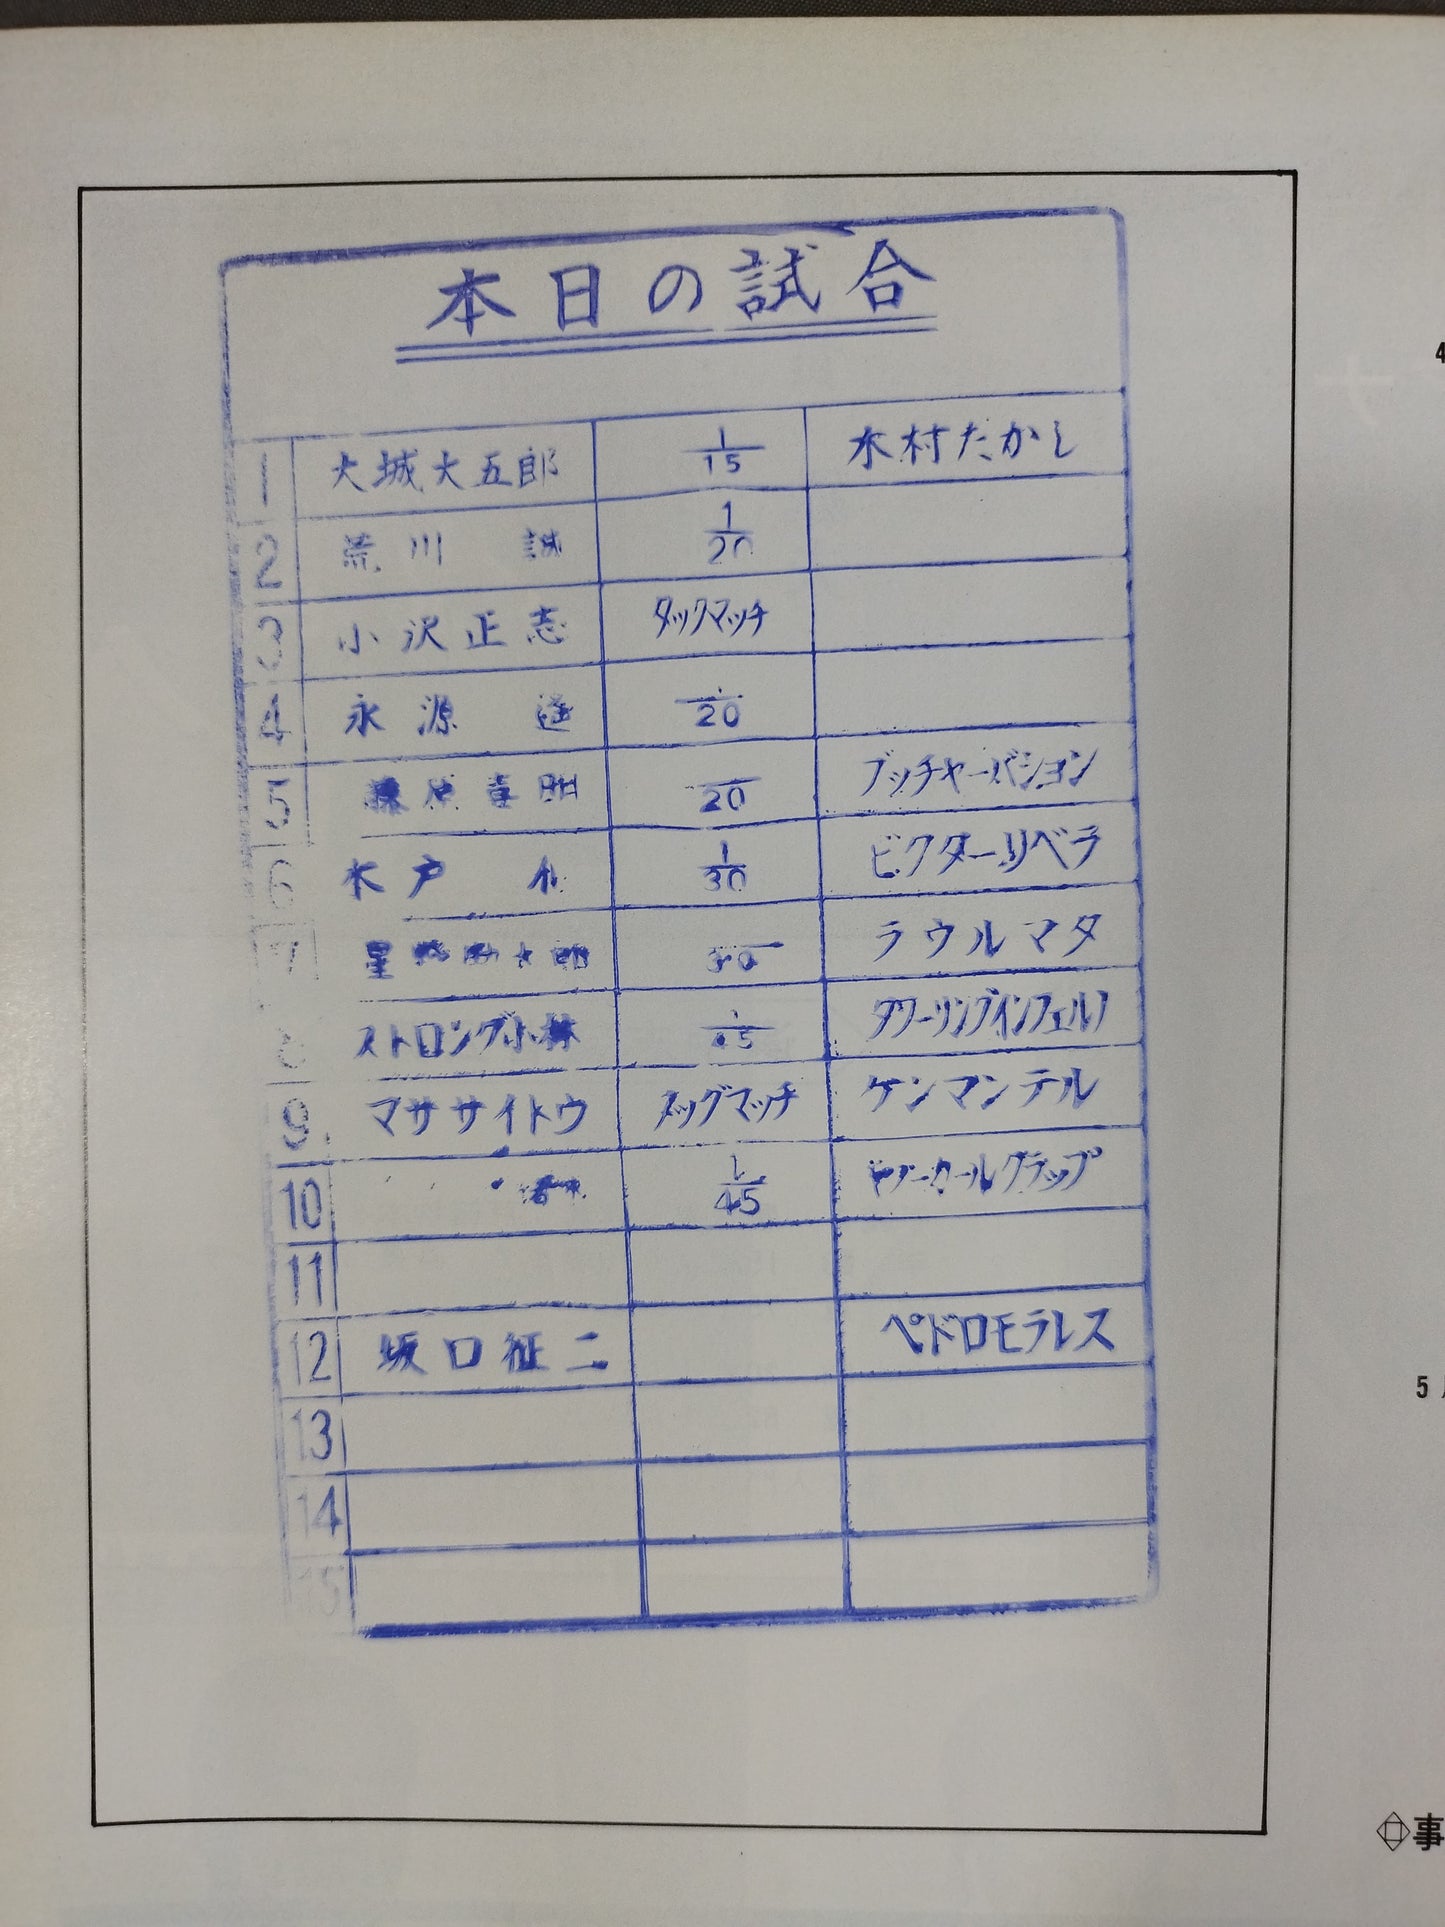 本日の試合
1 大城大五郎 1/15 木村たかし
2 荒川 誠 1/20
3 小沢正志 タッグマッチ
4 永源 遥 20
5 藤原喜明 20 ブッチャーバション
6 木戸 1/30 ビクターリベラ
7 星野勘太郎 30 ラウルマタ
8 ストロング小林 45 タワーリングインフェルノ
9 マササイトウ タッグマッチ ケンマンテル
10 1/45 クラップ
11
12 坂口征二 ペドロモラレス
13
14
15
4
5
事